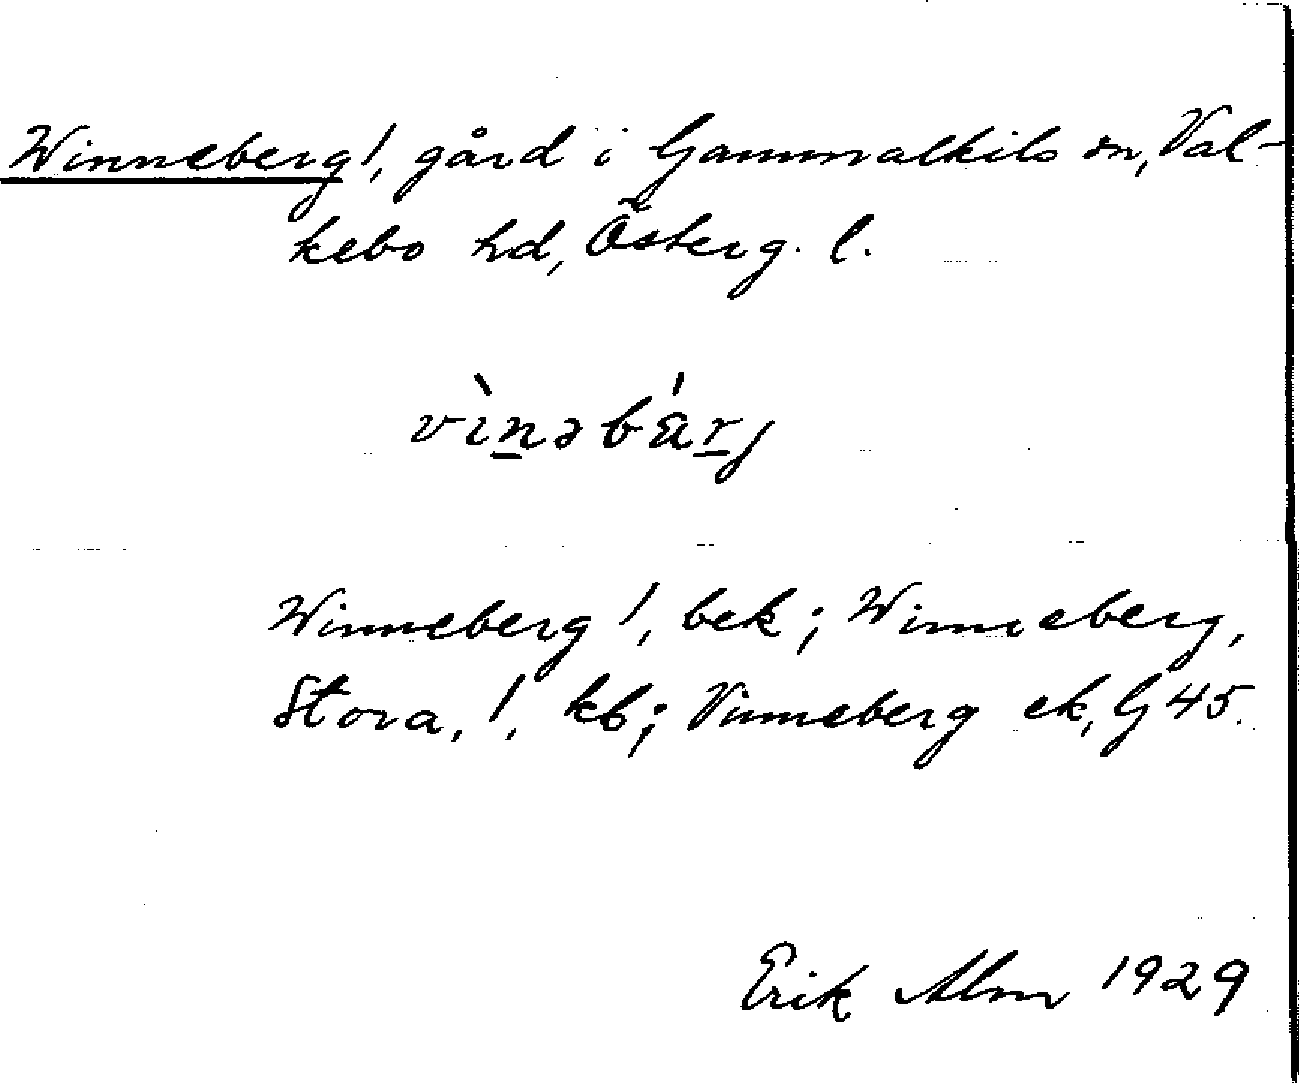 Winneberg!, gård i Gammalkils sn, Val-
kebo hd, Österg. l.
vìnəbárj
Winneberg !, bek; Winneberg,
Stora, !, kb; Vinneberg ek, G 45.
Erik Alm 1929